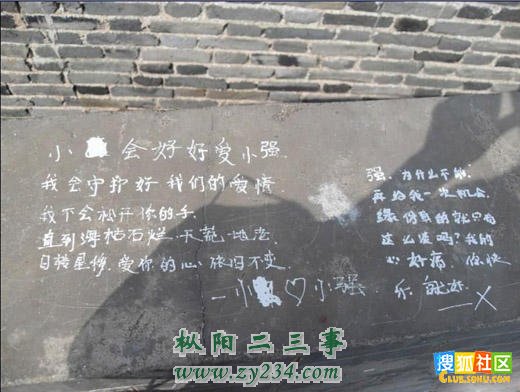 小 会好好爱小强.
我会守护好我们的爱情
我不会松开你的手
直到海枯石烂.天荒.地老
日转星移.爱你的心.依旧不变.
—小 ♡小强.
强.为什么不能
再给我一次机会
缘份真的就只有
这么浅吗?我的
心好痛 你快
乐
—X
枞阳二三事
www.zy234.com
搜狐社区
CLUB.SOHU.COM